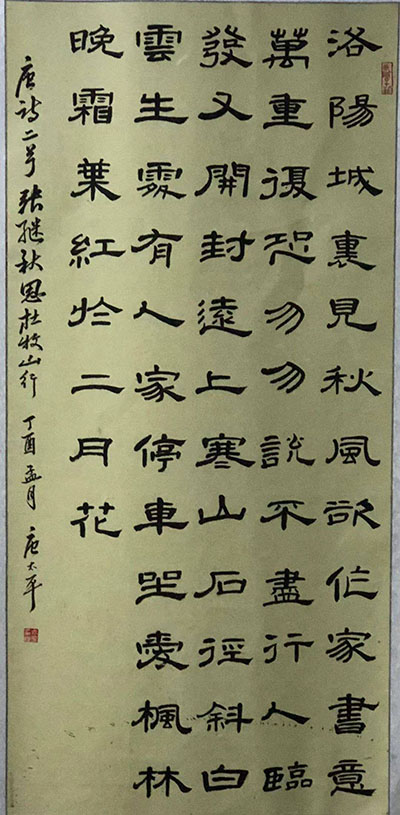 洛陽城裏見秋風欲作家書意
萬重復恐勿勿説不盡行人臨
發又開封遠上寒山石徑斜白
雲生處有人家停車坐愛楓林
晚霜葉紅於二月花
唐诗二首 张继秋思杜牧山行 丁酉孟月 唐太平